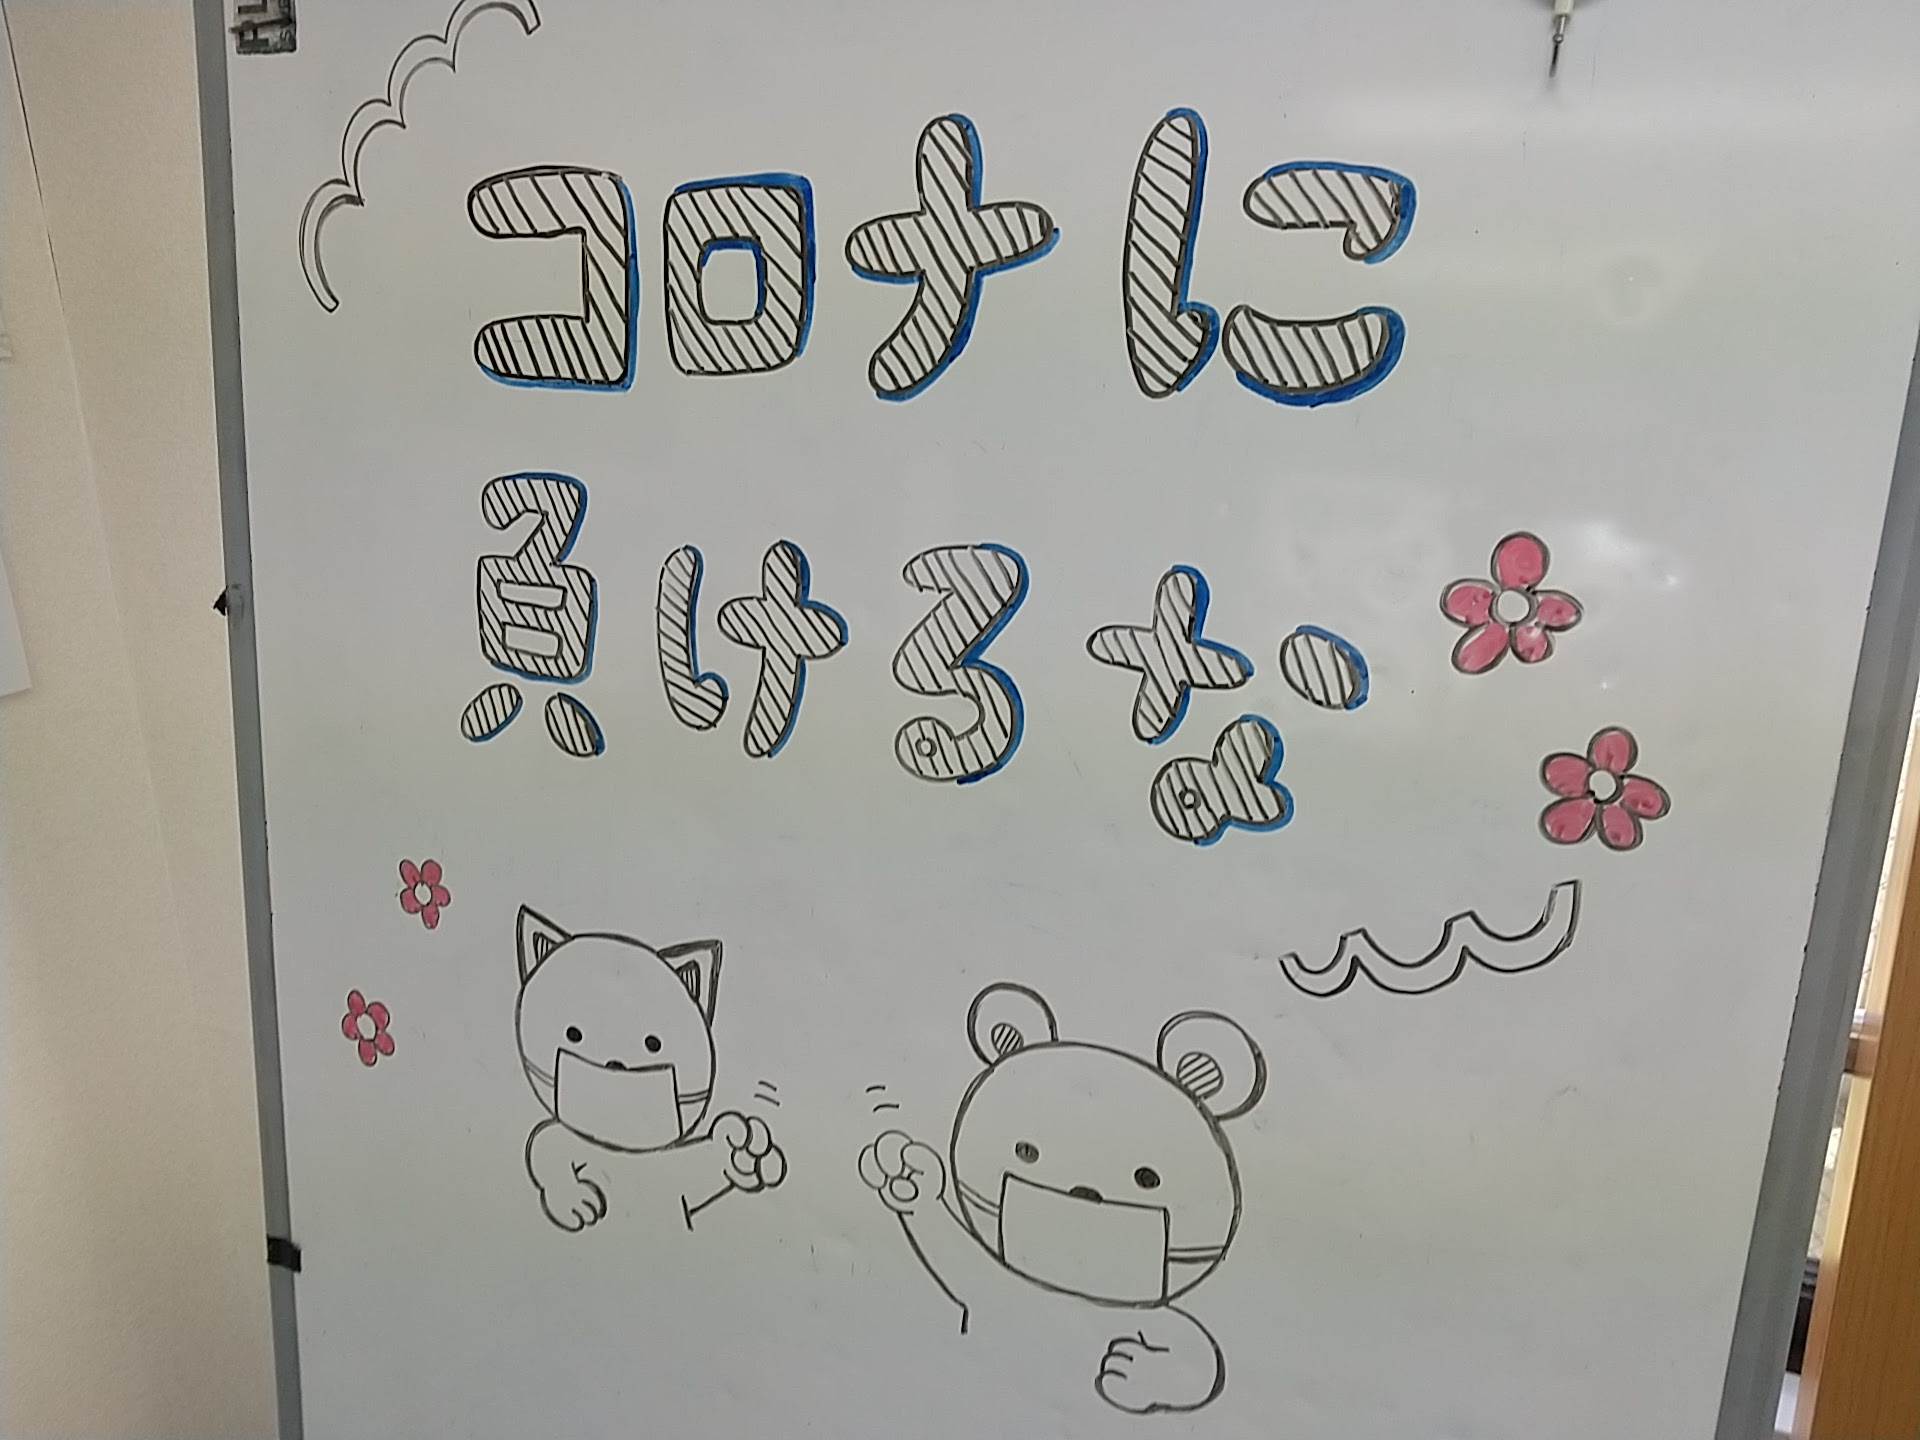 コロナに
負けるな